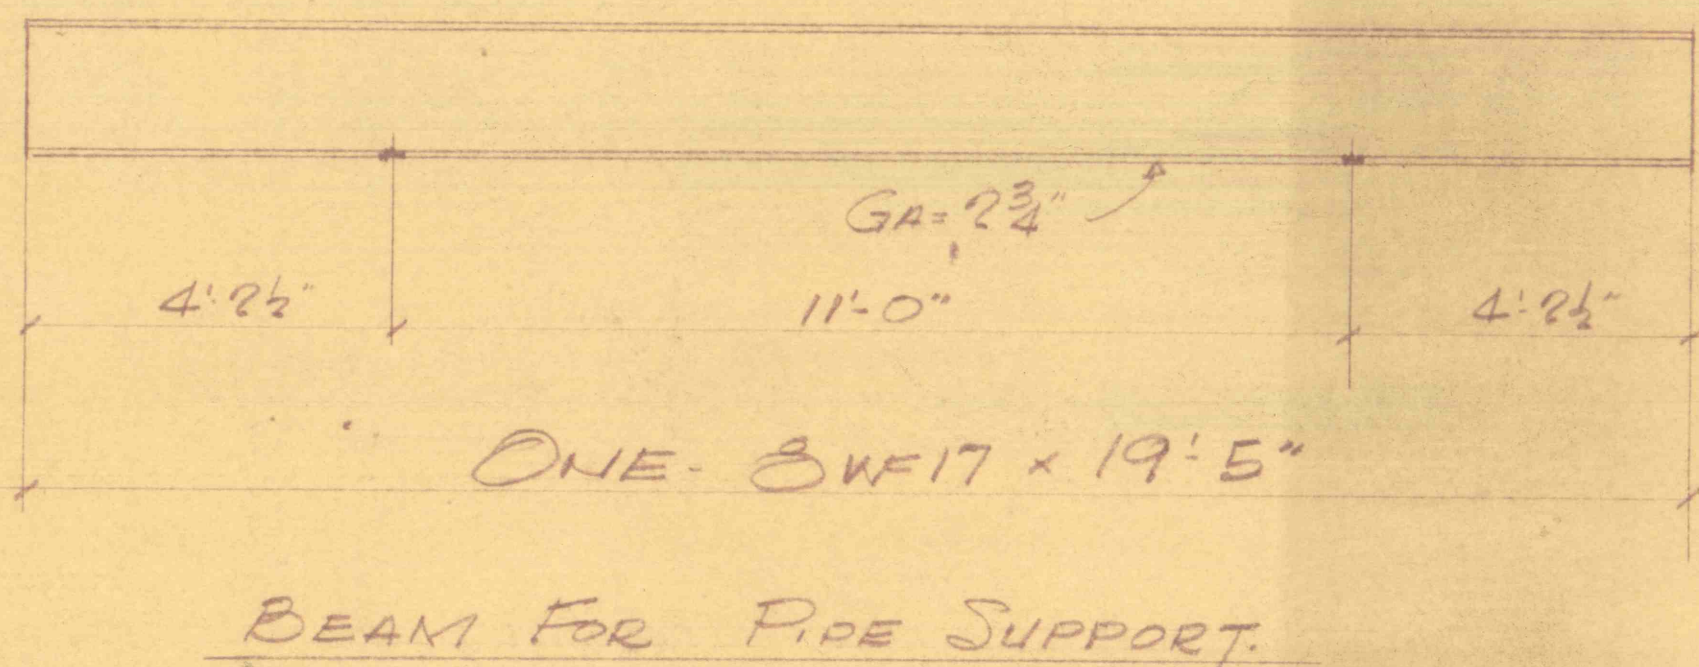 GA= 2 3/4"
4'-2½" 11'-0" 4'-2½"
ONE - 8 WF 17 x 19'-5"
BEAM FOR PIPE SUPPORT.